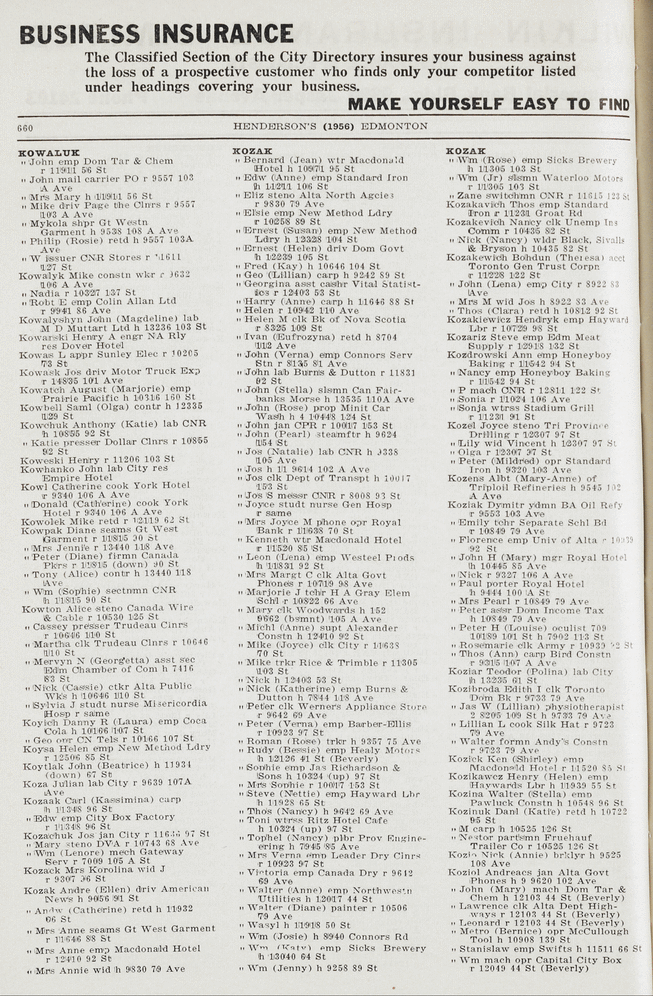 BUSINESS INSURANCE
The Classified Section of the City Directory insures your business against
the loss of a prospective customer who finds only your competitor listed
under headings covering your business.
MAKE YOURSELF EASY TO FIND
660
HENDERSON'S (1956) EDMONTON
KOWALUK
" John emp Dom Tar & Chem
r 11911 56 St
" John mail carrier PO r 9557 103
A Ave
" Mrs Mary h 11911 56 St
" Mike driv Page the Clnrs r 9557
103 A Ave
" Mykola shpr Gt Westn
Garment h 9538 108 A Ave
" Philip (Rosie) retd h 9557 103A
Ave
" W issuer CNR Stores r
127 St
Kowalyk Mike constn wkr r 9632
106 A Ave
" Nadia r 10327 137 St
" Robt E emp Colin Allan Ltd
r 9941 86 Ave
Kowalyshyn John (Magdeline) lab
M D Muttart Ltd h 13236 103 St
Kowarski Henry A engr NA Rly
res Dover Hotel
Kowas L appr Sunley Elec r 10205
73 St
Kowask Jos driv Motor Truck Exp
r 14835 101 Ave
Kowatch August (Marjorie) emp
Prairie Pacific h 10316 160 St
Kowbell Saml (Olga) contr h 12335
129 St
Kowchuk Anthony (Katie) lab CNR
h 10855 92 St
" Katie presser Dollar Clnrs r 10855
92 St
Koweski Henry r 11206 103 St
Kowhanko John lab City res
Empire Hotel
Kowl Catherine cook York Hotel
r 9340 106 A Ave
" Donald (Catherine) cook York
Hotel r 9340 106 A Ave
Kowolek Mike retd r 12119 62 St
Kowpak Diane seams Gt West
Garment r 11815 90 St
" Mrs Jennie r 13440 118 Ave
" Peter (Diane) firmn Canada
Pkrs r 11815 (down) 90 St
" Tony (Alice) contr h 13440 118
Ave
" Wm (Sophie) sectnmn CNR
h 11815 90 St
Kowton Alice steno Canada Wire
& Cable r 10530 125 St
" Cassey presser Trudeau Clnrs
r 10646 110 St
" Martha clk Trudeau Clnrs r 10646
110 St
" Mervyn N (Georgetta) asst sec
Edm Chamber of Com h 7416
83 St
" Nick (Cassie) ctkr Alta Public
Wks h 10646 110 St
" Sylvia J studt nurse Misericordia
Hosp r same
Koyich Danny R (Laura) emp Coca
Cola h 10166 107 St
" Geo opr CN Tels r 10166 107 St
Koysa Helen emp New Method Ldry
r 12506 85 St
Koytlak John (Beatrice) h 11934
(down) 67 St
Koza Julian lab City r 9639 107A
Ave
Kozaak Carl (Kassimina) carp
h 11348 96 St
" Edw emp City Box Factory
r 11348 96 St
Kozachuk Jos jan City r 97 St
" Mary steno DVA r 10743 68 Ave
" Wm (Lenore) mech Gateway
Serv r 7009 105 A St
Kozack Mrs Korolina wid J
r 9307 96 St
Kozak Andre (Ellen) driv American
News h 9056 91 St
" Andw (Catherine) retd h 11932
66 St
" Mrs Anne seams Gt West Garment
r 11646 88 St
" Mrs Anne emp Macdonald Hotel
r 12410 92 St
" Mrs Annie wid h 9830 79 Ave
KOZAK
" Bernard (Jean) wtr Macdonald
Hotel h 10971 95 St
" Edw (Anne) emp Standard Iron
h 11211 106 St
" Eliz steno Alta North Agcies
r 9830 79 Ave
" Elsie emp New Method Ldry
r 10258 89 St
" Ernest (Susan) emp New Method
Ldry h 12328 104 St
" Ernest (Helen) driv Dom Govt
h 12239 105 St
" Fred (Kay) h 10646 104 St
" Geo (Lillian) carp h 9242 89 St
" Georgina asst cashr Vital Statist-
ics r 12403 53 St
" Harry (Anne) carp h 11646 88 St
" Helen r 10942 110 Ave
" Helen M clk Bk of Nova Scotia
r 8325 109 St
" Ivan (Eufrozyna) retd h 8704
112 Ave
" John (Verna) emp Connors Serv
Stn r 8135 81 Ave
" John lab Burns & Dutton r 11831
92 St
" John (Stella) slsmn Can Fair-
banks Morse h 13535 110A Ave
" John (Rose) prop Minit Car
Wash h 4 10448 124 St
" John jan CPR r 10017 153 St
" John (Pearl) steamftr h 9624
154 St
" Jos (Natalie) lab CNR h 9338
105 Ave
" Jos h 11 9614 102 A Ave
" Jos clk Dept of Transpt h 10017
153 St
" Jos S messr CNR r 8008 93 St
" Joyce studt nurse Gen Hosp
r same
" Mrs Joyce M phone opr Royal
Bank r 11638 70 St
" Kenneth wtr Macdonald Hotel
r 11520 85 St
" Leon (Lena) emp Westeel Prods
h 11831 92 St
" Mrs Margt C clk Alta Govt
Phones r 10719 98 Ave
" Marjorie J tchr H A Gray Elem
Schl r 10822 66 Ave
" Mary clk Woodwards h 152
9662 (bsmnt) 105 A Ave
" Michl (Anne) supt Alexander
Constn h 12410 92 St
" Mike (Joyce) clk City r 11638
70 St
" Mike trkr Rice & Trimble r 11305
103 St
" Nick h 12403 53 St
" Nick (Katherine) emp Burns &
Dutton h 7844 118 Ave
" Peter clk Werners Appliance Store
r 9642 69 Ave
" Peter (Verna) emp Barber-Ellis
r 10923 97 St
" Roman (Rose) trkr h 9357 75 Ave
" Rudy (Bessie) emp Healy Motors
h 12126 41 St (Beverly)
" Sophie emp Jas Richardson &
Sons h 10324 (up) 97 St
" Mrs Sophie r 10017 153 St
" Steve (Nettie) emp Hayward Lbr
h 11928 65 St
" Thos (Nancy) h 9642 69 Ave
" Toni wtrss Ritz Hotel Cafe
h 10324 (up) 97 St
" Tophel (Nancy) plbr Prov Engine-
ering h 7945 85 Ave
" Mrs Verna emp Leader Dry Clnrs
r 10923 97 St
" Victoria emp Canada Dry r 9642
69 Ave
" Walter (Anne) emp Northwestn
Utilities h 12017 44 St
" Walter (Diane) painter r 10506
79 Ave
" Wasyl h 11918 50 St
" Wm (Josie) h 8940 Connors Rd
" Wm (Katy) emp Sicks Brewery
h 13040 64 St
" Wm (Jenny) h 9258 89 St
KOZAK
" Wm (Rose) emp Sicks Brewery
h 11305 103 St
" Wm (Jr) slsmn Waterloo Motors
r 11305 103 St
" Zane switchmn CNR r 11615 123 St
Kozakavich Thos emp Standard
Iron r 11231 Groat Rd
Kozakevich Nancy clk Unemp Ins
Comm r 10435 82 St
" Nick (Nancy) wldr Black, Sivalls
& Bryson h 10435 82 St
Kozakewich Bohdun (Theresa) acct
Toronto Gen Trust Corpn
r 11228 122 St
" John (Lena) emp City r 8922 83
Ave
" Mrs M wid Jos h 8922 83 Ave
" Thos (Clara) retd h 10812 92 St
Kozakiewicz Hendryk emp Hayward
Lbr r 10729 98 St
Kozariz Steve emp Edm Meat
Supply r 12918 132 St
Kozdrowski Ann emp Honeyboy
Baking r 11542 94 St
" Nancy emp Honeyboy Baking
r 11542 94 St
" P mach CNR r 12811 122 St
" Sonia r 11024 106 Ave
" Sonja wtrss Stadium Grill
r 11231 91 St
Kozel Joyce steno Tri Province
Drilling r 12307 97 St
" Lily wid Vincent h 12307 97 St
" Olga r 12307 97 St
" Peter (Mildred) opr Standard
Iron h 9320 103 Ave
Kozens Albt (Mary-Anne) of
Triploil Refineries h 9545 102
A Ave
Koziak Dymitr ydmn BA Oil Refy
r 9553 103 Ave
" Emily tchr Separate Schl Bd
r 10849 79 Ave
" Florence emp Univ of Alta r 10939
92 St
" John H (Mary) mgr Royal Hotel
h 10445 85 Ave
" Nick r 9327 106 A Ave
" Paul porter Royal Hotel
h 9444 100 A St
" Mrs Pearl r 10849 79 Ave
" Peter assr Dom Income Tax
h 10849 79 Ave
" Peter H (Louise) oculist 709
10189 101 St h 7902 113 St
" Rosemarie clk Army r 10939 92 St
" Thos (Ann) carp Bird Constn
r 9315 107 A Ave
Koziar Teodor (Polina) lab City
h 13235 61 St
Kozibroda Edith I clk Toronto
Dom Bk r 9733 79 Ave
" Jas W (Lillian) physiotherapist
2 8205 109 St h 9733 79 Ave
" Lillian L cook Silk Hat r 9723
79 Ave
" Walter formn Andy's Constn
r 9723 79 Ave
Kozick Ken (Shirley) emp
Macdonald Hotel r 11520 85 St
Kozikawcz Henry (Helen) emp
Haywards Lbr h 11939 55 St
Kozina Walter (Stella) emp
Pawluck Constn h 10548 96 St
Kozinuk Danl (Katie) retd h 10722
95 St
" M carp h 10525 126 St
" Nestor partsmn Fruehauf
Trailer Co r 10525 126 St
Kozio Nick (Annie) brklyr h 9525
108 Ave
Koziol Andreacs jan Alta Govt
Phones h 9 9620 102 Ave
" John (Mary) mach Dom Tar &
Chem h 12103 44 St (Beverly)
" Lawrence clk Alta Dept High-
ways r 12103 44 St (Beverly)
" Leonard r 12103 44 St (Beverly)
" Metro (Bernice) opr McCullough
Tool h 10908 139 St
" Stanislaw emp Swifts h 11511 66 St
" Wm mach opr Capital City Box
r 12049 44 St (Beverly)